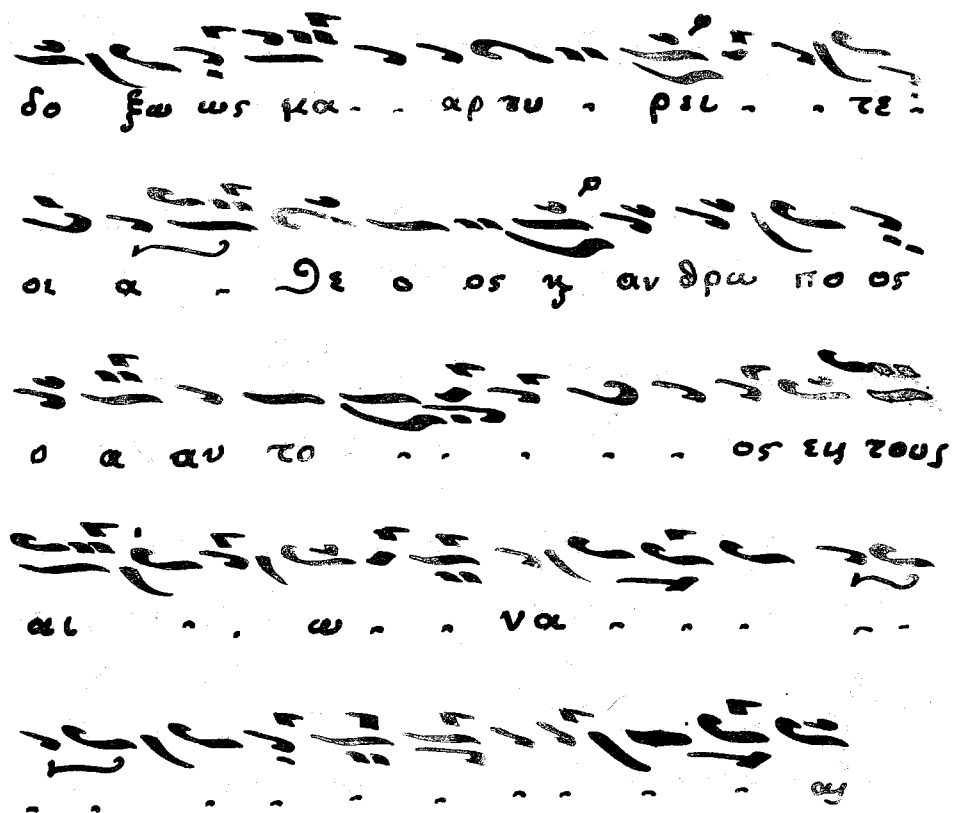 δο ξω ως μα - - αρ τυ - ρει - - τε -
οι α - Θε ο ος κ̀ αν θρω πο ος
ο α αυ το - - - - - ος εις τους
αι - - ω - - να - - - - -
- - - - - - - - - - ας